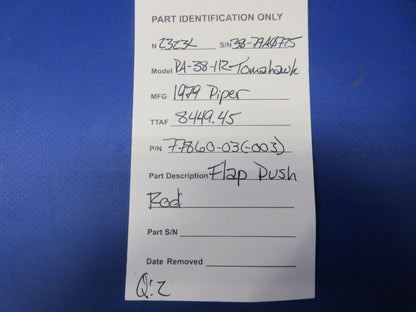 PART IDENTIFICATION ONLY
N 2323L S/N 38-79A0725
Model PA-38-112 Tomahawk
MFG 1979 Piper
TTAF 8449.45
P/N 77860-03(-003)
Part Description Flap Push
Rod
Part S/N
Date Removed
Q:2